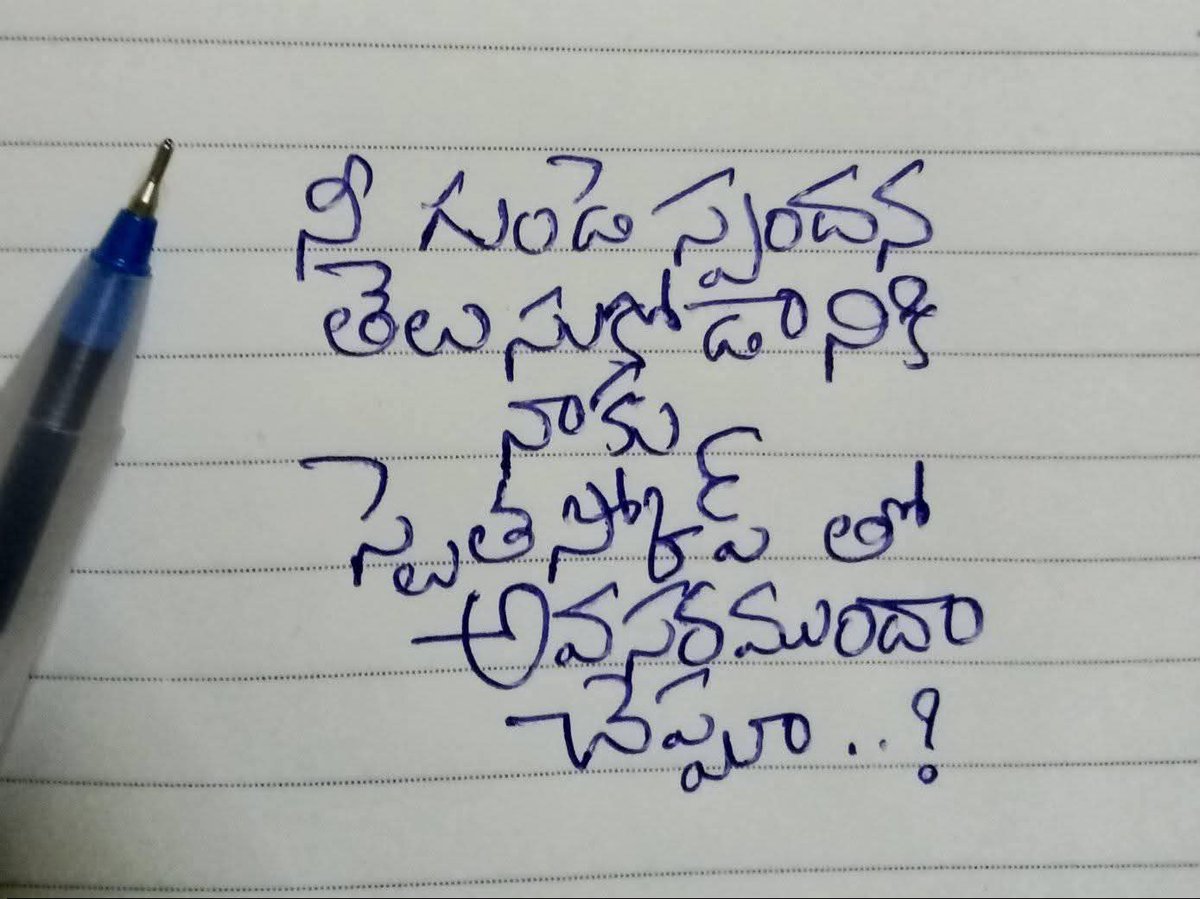 నీ గుండె స్పందన
తెలుసుకోడానికి
నాకు
స్టెతస్కోప్ తో
అవసరముందా
చెప్పూ..?